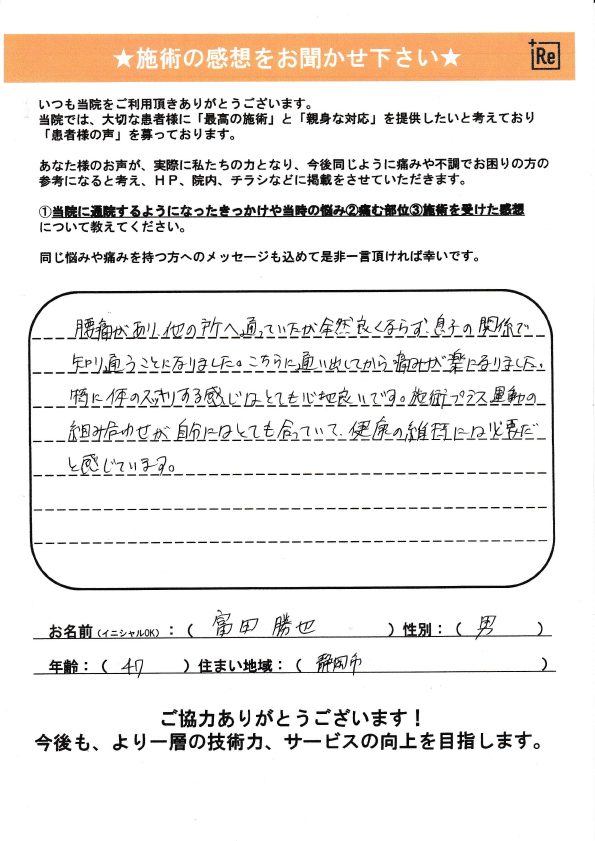 ★施術の感想をお聞かせ下さい★
+Re
いつも当院をご利用頂きありがとうございます。
当院では、大切な患者様に「最高の施術」と「親身な対応」を提供したいと考えており
「患者様の声」を募っております。
あなた様のお声が、実際に私たちの力となり、今後同じように痛みや不調でお困りの方の
参考になると考え、HP、院内、チラシなどに掲載をさせていただきます。
①当院に通院するようになったきっかけや当時の悩み②痛む部位③施術を受けた感想
について教えてください。
同じ悩みや痛みを持つ方へのメッセージも込めて是非一言頂ければ幸いです。
腰痛があり、他の所へ通っていたが全然良くならず、息子の関係で
知り通うことになりました。こちらに通い出してから痛みが楽になりました。
特に体のスッキリする感じはとても心地良いです。施術プラス運動の
組み合わせが自分にはとても合っていて、健康の維持には必要だ
と感じています。
お名前(イニシャルOK):( 富田 勝也 )性別:( 男 )
年齢:( 47 )住まい地域:( 静岡市 )
ご協力ありがとうございます!
今後も、より一層の技術力、サービスの向上を目指します。